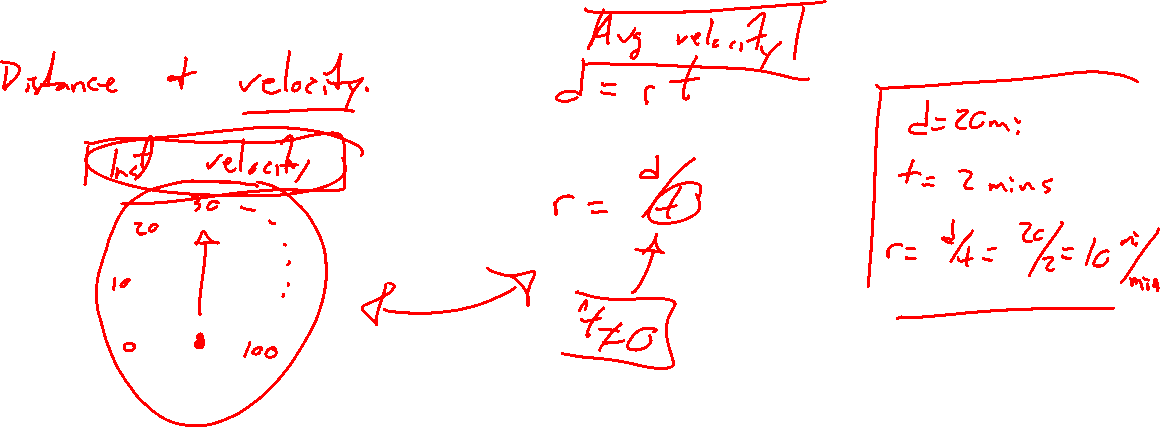 Distance + velocity.
Inst velocity
0 10 20 30 100
Avg velocity
d = r t
r = d/t
t ≠ 0
d = 20 mi
t = 2 mins
r = d/t = 20/2 = 10 mi/min